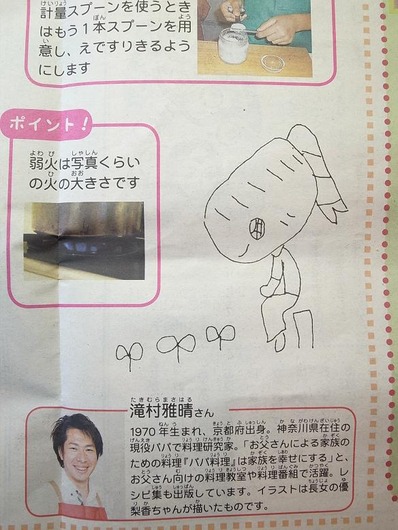 計量スプーンを使うとき
はもう1本スプーンを用
意し、えですりきるよう
にします
ポイント!
弱火は写真くらい
の火の大きさです
たきむらまさはる
滝村雅晴さん
1970年生まれ、京都府出身。神奈川県在住の
現役パパで料理研究家。「お父さんによる家族の
ための料理『パパ料理』は家族を幸せにする」と、
お父さん向けの料理教室や料理番組で活躍。レ
シピ集も出版しています。イラストは長女の優
梨香ちゃんが描いたものです。